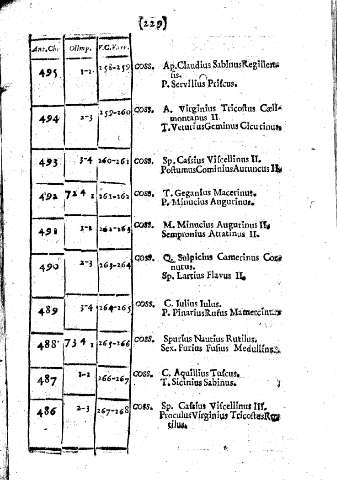 (229)
Ant.Ch. Olimp. V.C.Varr.
495 1-2 258-259 COSS. Ap. Claudius Sabinus Regillen-
sis.
P. Servilius Priscus.
494 2-3 259-260 COSS. A. Virginius Tricostus Cæli-
montanus II.
T. Veturius Geminus Cicurinus.
493 3-4 260-261 COSS. Sp. Cassius Viscellinus II.
Postumus Cominius Auruncus II.
492 72 4 1 261-262 COSS. T. Geganius Macerinus.
P. Minucius Augurinus.
491 1-2 262-263 COSS. M. Minucius Augurinus II.
Sempronius Atratinus II.
490 2-3 263-264 COSS. Q. Sulpicius Camerinus Cor-
nutus.
Sp. Lartius Flavus II.
489 3-4 264-265 COSS. C. Iulius Iulus.
P. Pinarius Rufus Mamercinus
488 73 4 1 265-266 COSS. Spurius Nautius Rutilus.
Sex. Furius Fusius Medullinus.
487 1-2 266-267 COSS. C. Aquillius Tuscus.
T. Sicinius Sabinus.
486 2-3 267-268 COSS. Sp. Cassius Viscellinus III.
Proculus Virginius Tricostus Ru-
tilus.